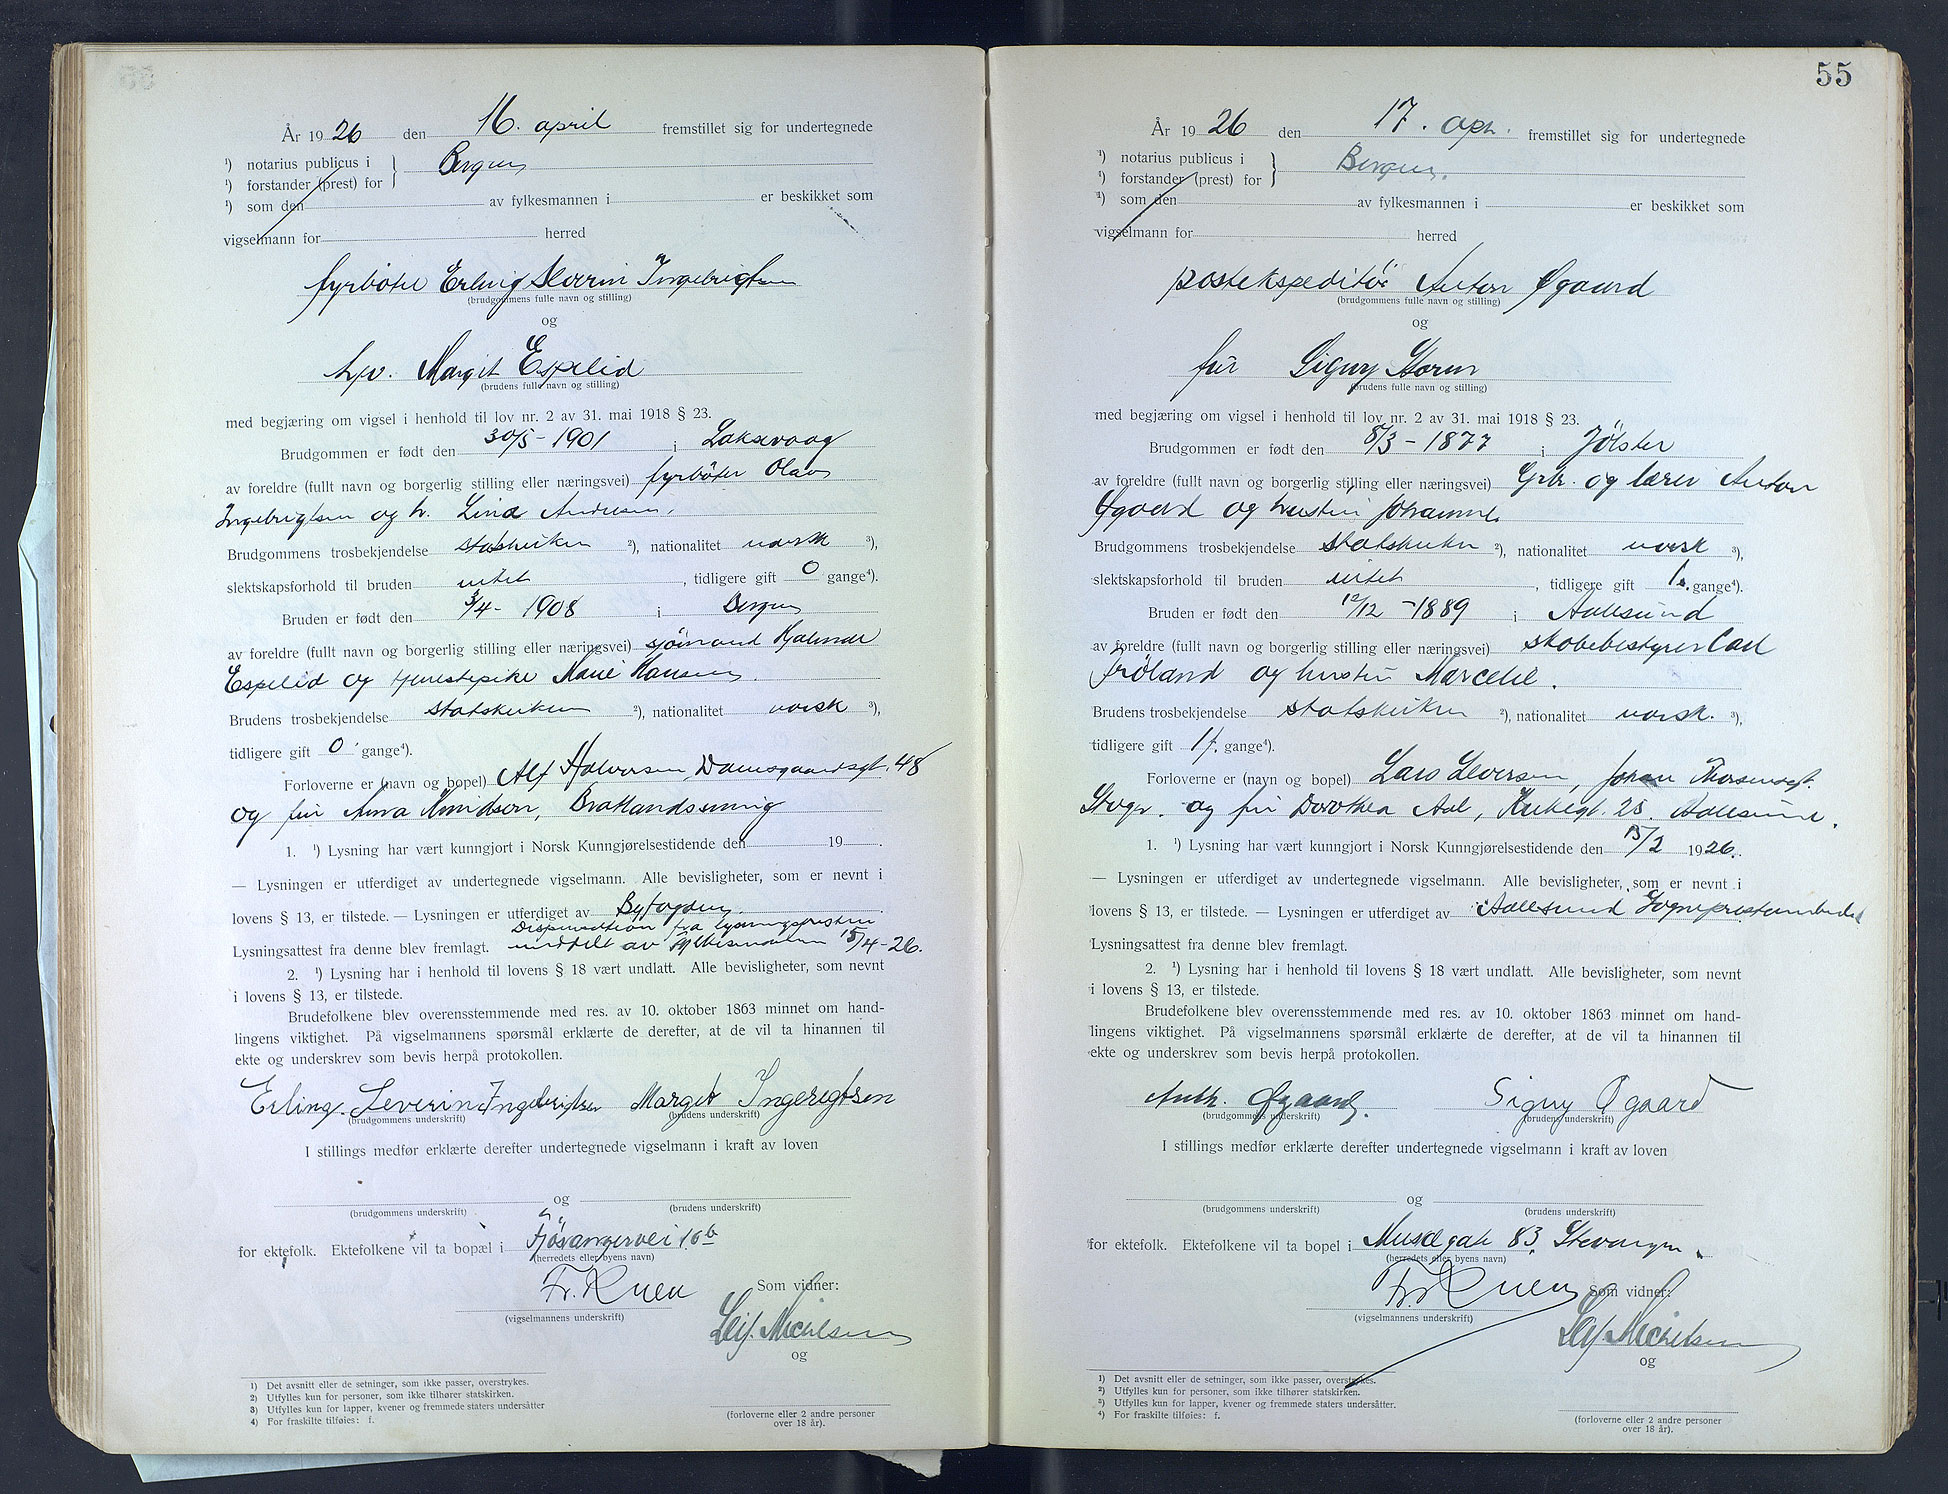 År 1926 den 16. april fremstillet sig for undertegnede
¹) notarius publicus i
Bergen
¹) forstander (prest) for
¹) som den av fylkesmannen i er beskikket som
vigselmann for herred
fyrbøter Erling Severin Ingebrigtsen
(brudgommens fulle navn og stilling)
og
Margit Espelid
(brudens fulle navn og stilling)
med begjæring om vigsel i henhold til lov nr. 2 av 31. mai 1918 § 23.
Brudgommen er født den 30/5 - 1901 i Laksevaag
av foreldre (fullt navn og borgerlig stilling eller næringsvei) fyrbøter Olav
Ingebrigtsen og h. Lina Andersen,
Brudgommens trosbekjendelse statskirken ²), nationalitet norsk ³),
slektskapsforhold til bruden intet, tidligere gift 0 gange⁴).
Bruden er født den 3/4 - 1908 i Bergen
av foreldre (fullt navn og borgerlig stilling eller næringsvei) sjømand Hjalmar
Espelid og tjenestepike Marie Hansen.
Brudens trosbekjendelse statskirken ²), nationalitet norsk ³),
tidligere gift 0 gange⁴).
Forloverne er (navn og bopel) Alf Halvorsen, Damsgaardsgt. 48
og frk Anna Knudsen,
1. ¹) Lysning har vært kunngjort i Norsk Kunngjørelsestidende den 19 .
— Lysningen er utferdiget av undertegnede vigselmann. Alle bevisligheter, som er nevnt i
lovens § 13, er tilstede. — Lysningen er utferdiget av Byfogden.
Dispensation fra lysningsfristen
Lysningsattest fra denne blev fremlagt. meddelt av fylkesmannen 15/4-26.
2. ¹) Lysning har i henhold til lovens § 18 vært undlatt. Alle bevisligheter, som nevnt
i lovens § 13, er tilstede.
Brudefolkene blev overensstemmende med res. av 10. oktober 1863 minnet om hand-
lingens viktighet. På vigselmannens spørsmål erklærte de derefter, at de vil ta hinannen til
ekte og underskrev som bevis herpå protokollen.
Erling. Severin Ingebrigtsen Margit Ingerigtsen
(brudgommens underskrift) (brudens underskrift)
I stillings medfør erklærte derefter undertegnede vigselmann i kraft av loven
og
(brudgommens underskrift) (brudens underskrift)
for ektefolk. Ektefolkene vil ta bopæl i Fjøsangervei 10b
(herredets eller byens navn)
Fr. Knen Som vidner:
(vigselmannens underskrift)
Leif. Michelsen
og
¹) Det avsnitt eller de setninger, som ikke passer, overstrykes.
²) Utfylles kun for personer, som ikke tilhører statskirken.
³) Utfylles kun for lapper, kvener og fremmede staters undersåtter
⁴) For fraskilte tilføies: f.
(forloverne eller 2 andre personer
over 18 år).
55
År 1926 den 17. apr. fremstillet sig for undertegnede
¹) notarius publicus i
Bergen.
¹) forstander (prest) for
¹) som den av fylkesmannen i er beskikket som
vigselmann for herred
postekspeditør Anton Øgaard
(brudgommens fulle navn og stilling)
og
frue Signy Storm
(brudens fulle navn og stilling)
med begjæring om vigsel i henhold til lov nr. 2 av 31. mai 1918 § 23.
Brudgommen er født den 8/3 - 1877 i Jølster
av foreldre (fullt navn og borgerlig stilling eller næringsvei) Grbr. og lærer Anton
Øgaard og hustru Johanne.
Brudgommens trosbekjendelse statskirken ²), nationalitet norsk ³),
slektskapsforhold til bruden intet, tidligere gift 1 gange⁴).
Bruden er født den 12/12 - 1889 i Aalesund
av foreldre (fullt navn og borgerlig stilling eller næringsvei) Carl
Frøland og hustru Marcelie.
Brudens trosbekjendelse statskirken ²), nationalitet norsk. ³),
tidligere gift 1 f. gange⁴).
Forloverne er (navn og bopel) Lars Sivertsen,
og fru Dorothea Aal, Kirkegt. 28. Aalesund.
1. ¹) Lysning har vært kunngjort i Norsk Kunngjørelsestidende den 15/2 1926.
— Lysningen er utferdiget av undertegnede vigselmann. Alle bevisligheter, som er nevnt i
lovens § 13, er tilstede. — Lysningen er utferdiget av Aalesund Sogneprestembede
Lysningsattest fra denne blev fremlagt.
2. ¹) Lysning har i henhold til lovens § 18 vært undlatt. Alle bevisligheter, som nevnt
i lovens § 13, er tilstede.
Brudefolkene blev overensstemmende med res. av 10. oktober 1863 minnet om hand-
lingens viktighet. På vigselmannens spørsmål erklærte de derefter, at de vil ta hinannen til
ekte og underskrev som bevis herpå protokollen.
Anth. Øgaard. Signy Øgaard
(brudgommens underskrift) (brudens underskrift)
I stillings medfør erklærte derefter undertegnede vigselmann i kraft av loven
og
(brudgommens underskrift) (brudens underskrift)
for ektefolk. Ektefolkene vil ta bopel i Muségate 83, Stavanger.
(herredets eller byens navn)
Fr. Knen Som vidner:
(vigselmannens underskrift)
Leif. Michelsen
og
¹) Det avsnitt eller de setninger, som ikke passer, overstrykes.
²) Utfylles kun for personer, som ikke tilhører statskirken.
³) Utfylles kun for lapper, kvener og fremmede staters undersåtter.
⁴) For fraskilte tilføies: f.
(forloverne eller 2 andre personer
over 18 år).